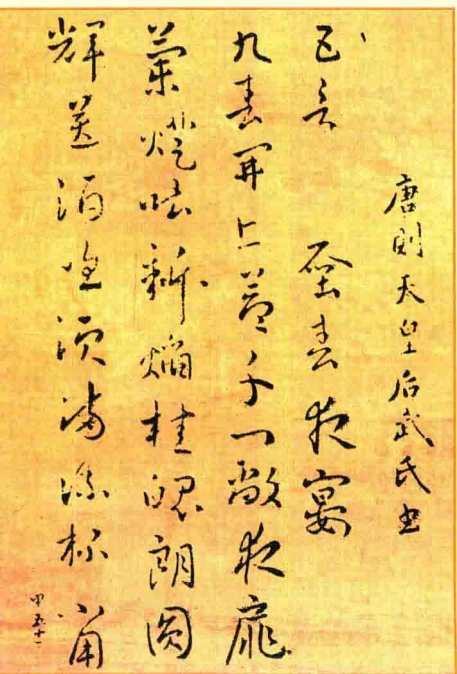 唐則天皇后武氏書
五言 早春夜宴
九春開上節千門敞夜扉
蘭燈吐新焰桂魄朗圓
輝送酒惟須滿流杯不用
甲五十一